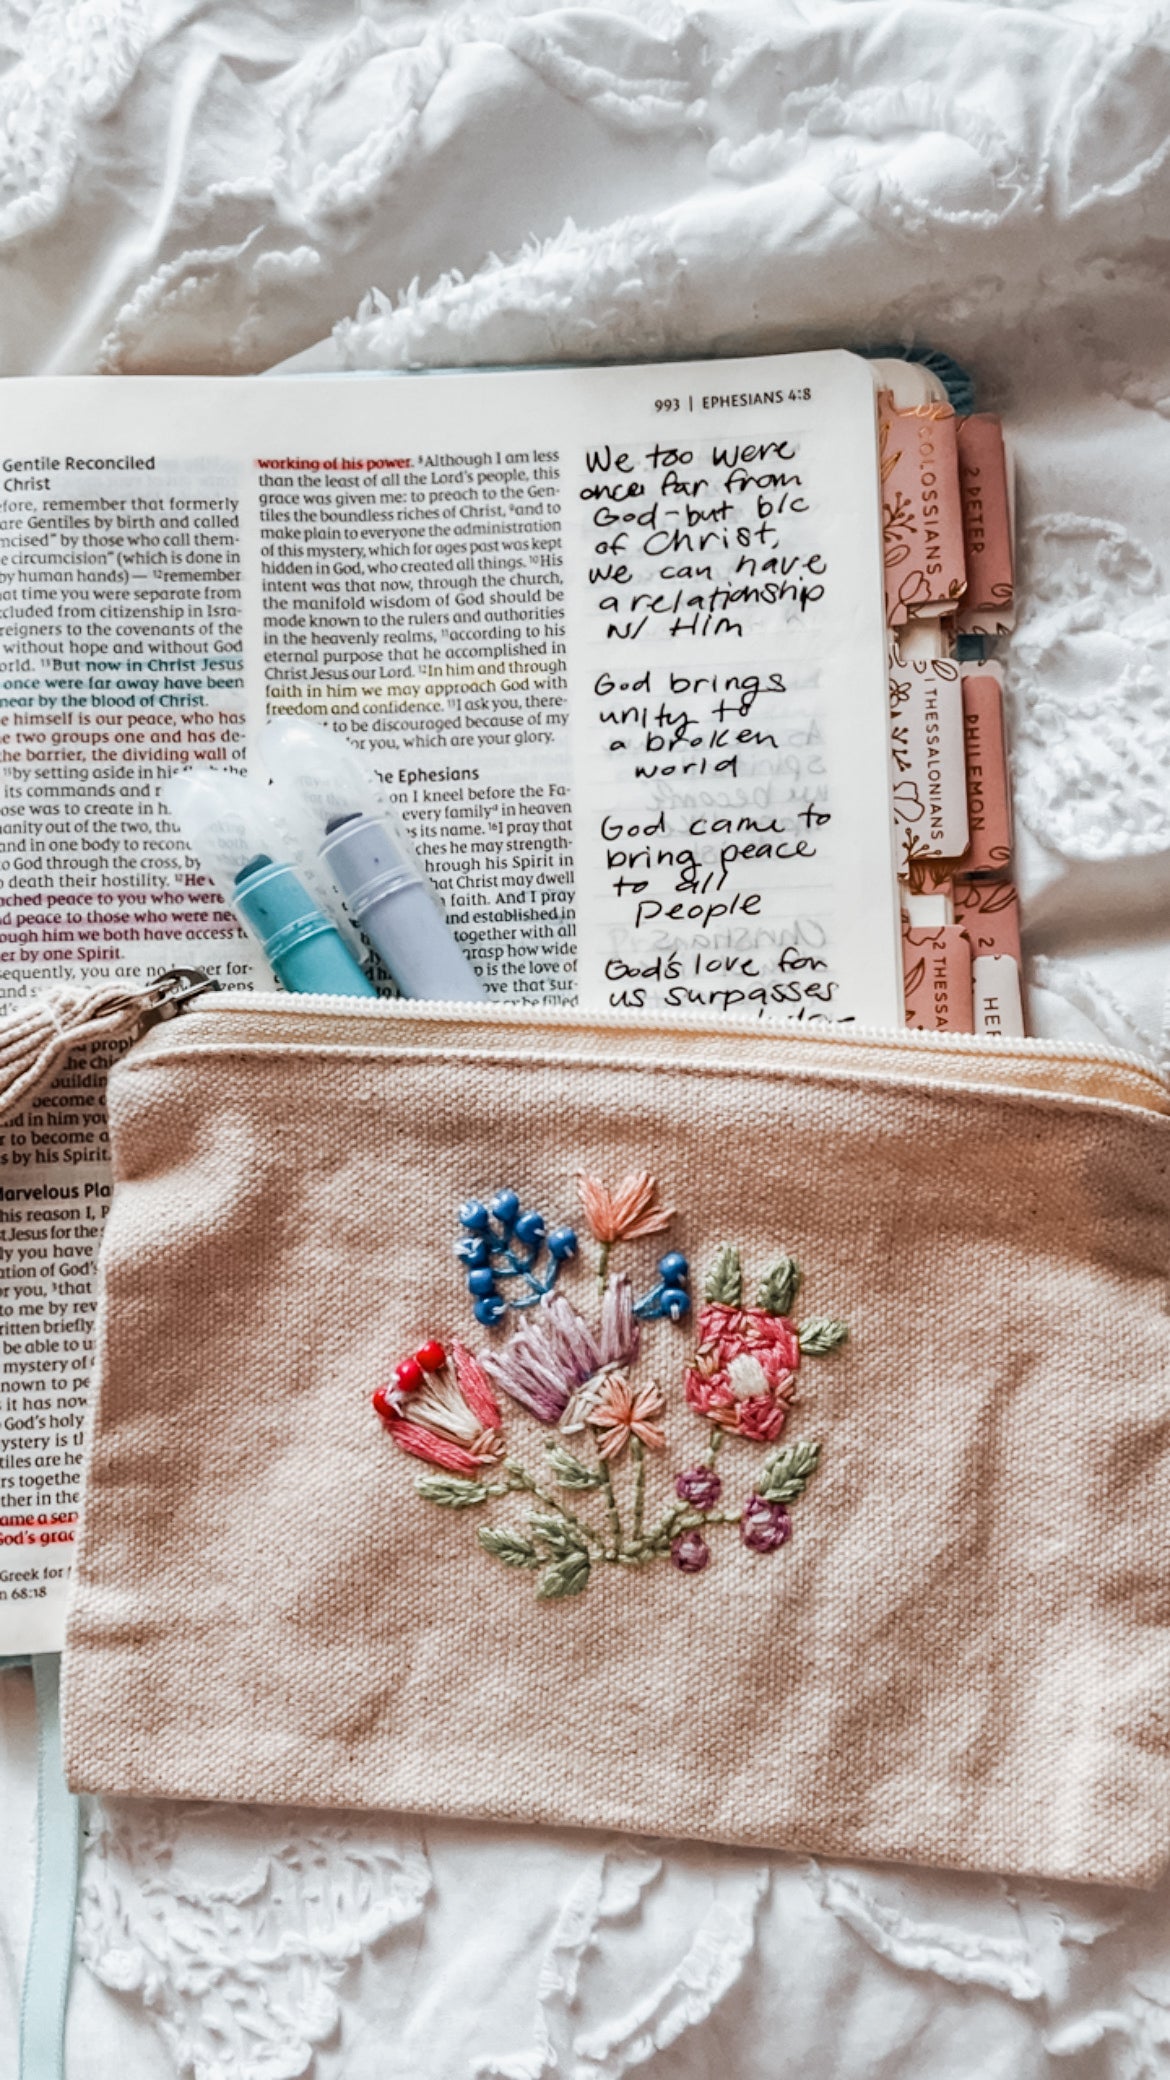 993 | EPHESIANS 4:8
Gentile Reconciled
Christ
remember that formerly
are Gentiles by birth and called
by those who call them-
circumcision” (which is done in
by human hands) — ¹²remember
time you were separate from
from citizenship in Isra-
to the covenants of the
without hope and without God
¹³But now in Christ Jesus
once were far away have been
near by the blood of Christ.
himself is our peace, who has
two groups one and has de-
the barrier, the dividing wall of
¹⁵by setting aside in his the
its commands and
was to create in
out of the two,
and in one body to
God through the cross, by
death their hostility. ¹⁷He
peace to you who were
peace to those who were
him we both have access
by one Spirit.
you are no for-
and
become
in him you
to become a
by his Spirit.
Marvelous
his reason I,
Jesus for the
you have
of God's
you, ³that
to me by
briefly.
be able to
mystery of
to
it has now
God's holy
is
are
in the
a
God's
Greek for
68:18
working of his power. ⁸Although I am less
than the least of all the Lord's people, this
grace was given me: to preach to the Gen-
tiles the boundless riches of Christ, ⁹and to
make plain to everyone the administration
of this mystery, which for ages past was kept
hidden in God, who created all things. ¹⁰His
intent was that now, through the church,
the manifold wisdom of God should be
made known to the rulers and authorities
in the heavenly realms, ¹¹according to his
eternal purpose that he accomplished in
Christ Jesus our Lord. ¹²In him and through
faith in him we may approach God with
freedom and confidence. ¹³I ask you, there-
to be discouraged because of my
for you, which are your glory.
the Ephesians
on I kneel before the Fa-
every familyᵈ in heaven
its name. ¹⁶I pray that
he may strength-
through his Spirit in
that Christ may dwell
faith. And I pray
and established in
together with all
grasp how wide
is the love of
love that sur-
be filled
We too were
once far from
God-but b/c
of Christ,
we can have
a relationship
w/ Him
God brings
unity to
a broken
world
God came to
bring peace
to all
people
God's love for
us surpasses
COLOSSIANS
2 PETER
1 THESSALONIANS
PHILEMON
2 THESSA
2
HEB